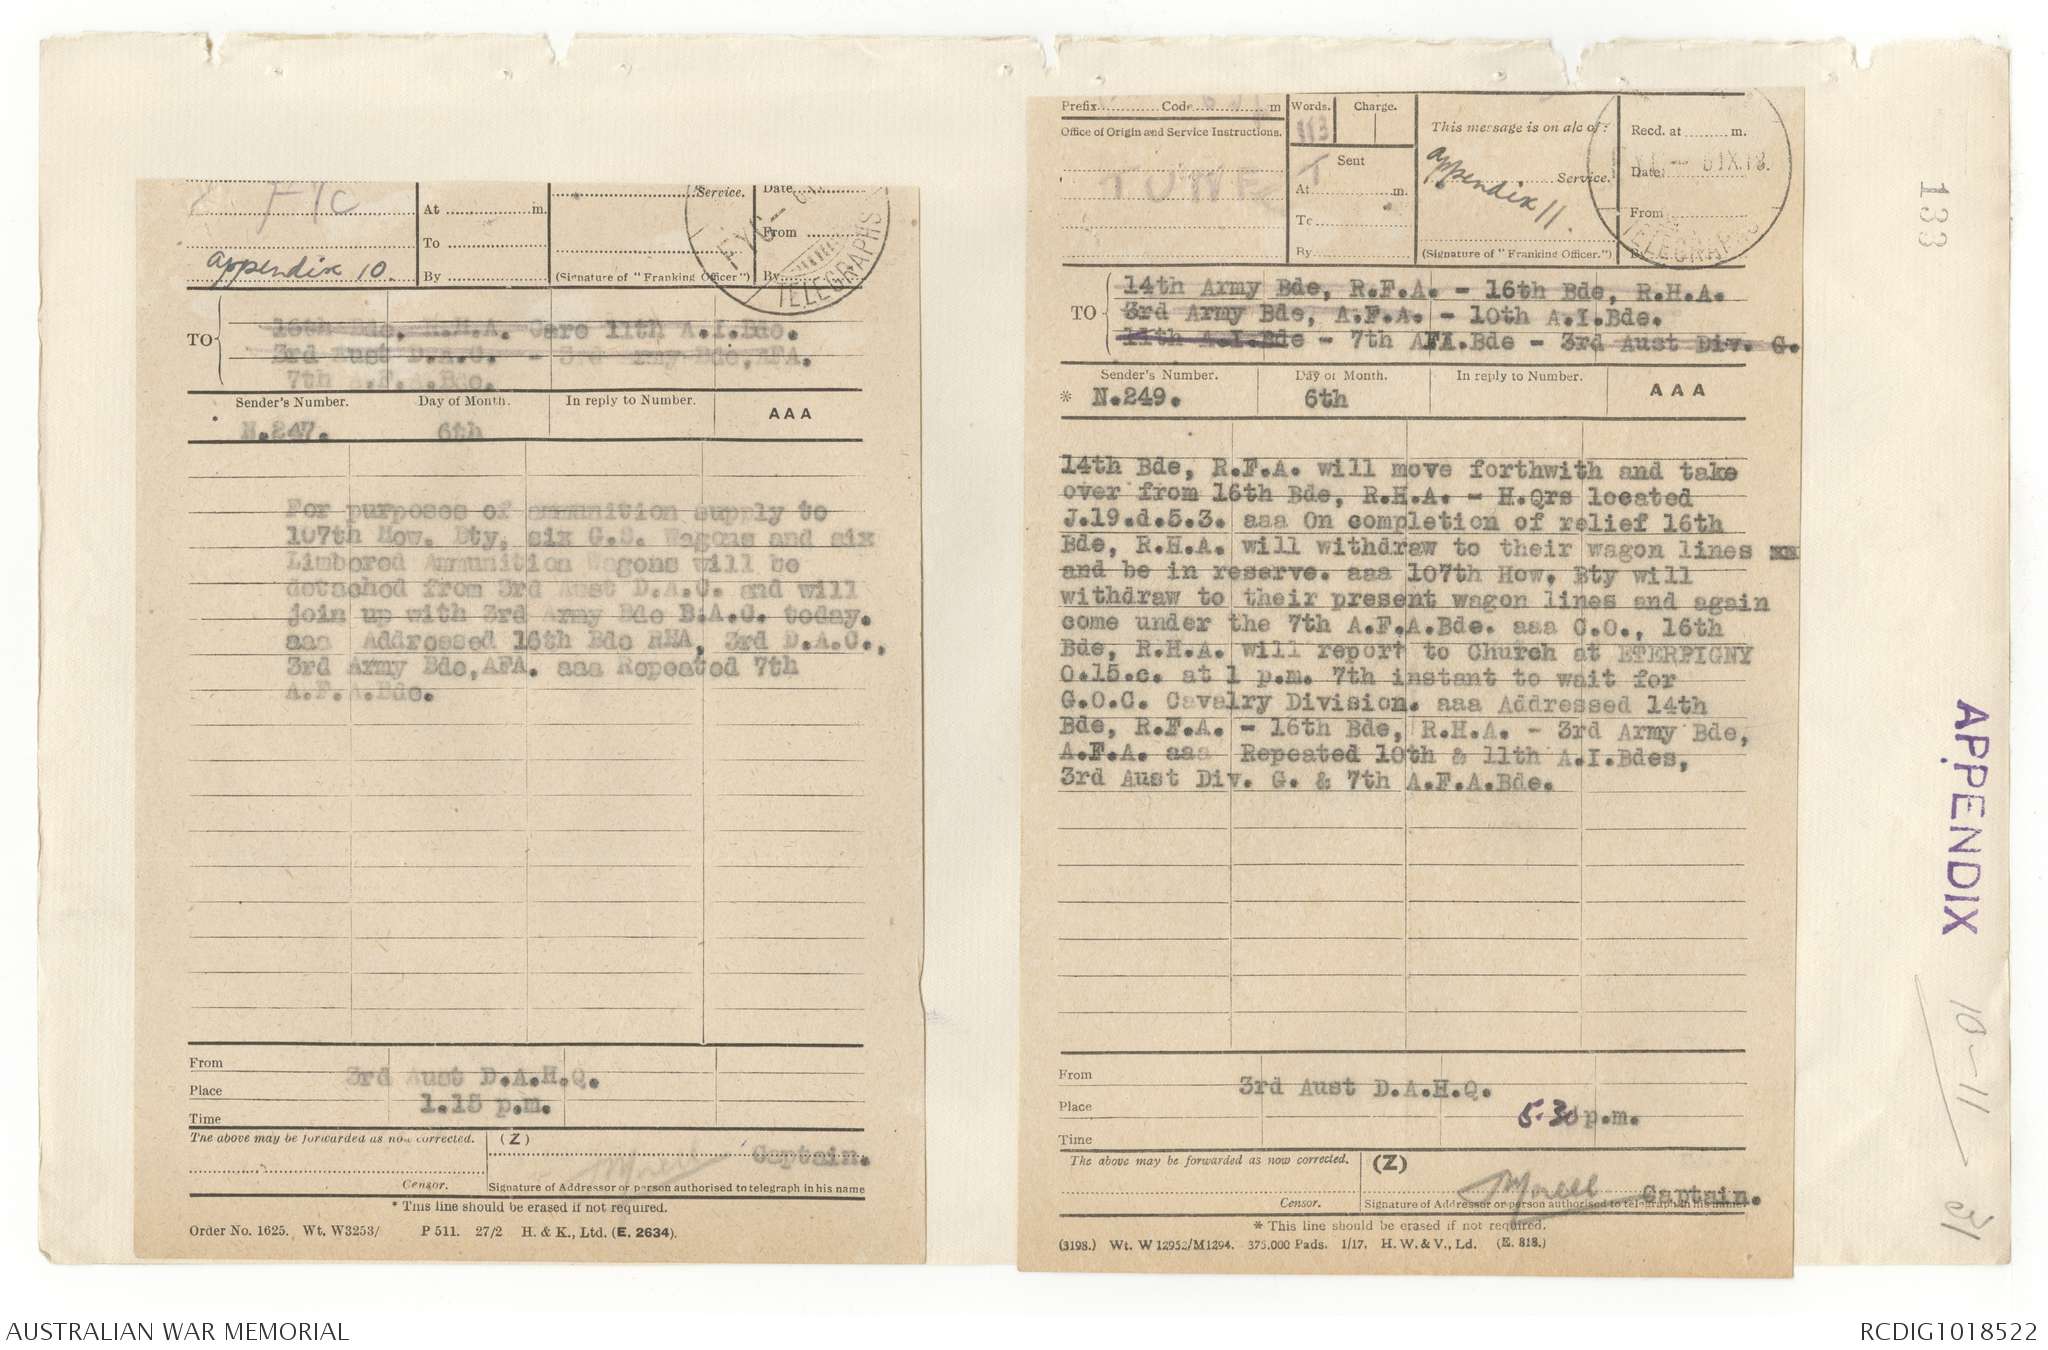 FYC
appendix 10.
At ............ m.
To ............
By ............
Service.
(Signature of "Franking Officer")
Date
From
By
FYC
TELEGRAPHS
TO
16th Bde, R.H.A. Care 11th A.I.Bde.
3rd Aust D.A.C. - 3rd Army Bde, AFA.
7th A.F.A.Bde.
Sender's Number. Day of Month. In reply to Number. AAA
N.247. 6th
For purposes of ammunition supply to
107th How. Bty, six G.S. Wagons and six
Limbered Ammunition Wagons will be
detached from 3rd Aust D.A.C. and will
join up with 3rd Army Bde B.A.C. today.
aaa Addressed 16th Bde RHA, 3rd D.A.C.,
3rd Army Bde, AFA. aaa Repeated 7th
A.F.A.Bde.
From
3rd Aust D.A.H.Q.
Place
1.15 p.m.
Time
The above may be forwarded as now corrected. (Z)
Captain.
Censor. Signature of Addressor or person authorised to telegraph in his name
* This line should be erased if not required.
Order No. 1625. Wt. W3253/ P 511. 27/2 H. & K., Ltd. (E. 2634).
Prefix ............ Code ............ m Words. Charge.
Office of Origin and Service Instructions.
113
TUNE
Sent
At ............ m.
To ............
By ............
This message is on a/c of:
appendix 11.
Service.
(Signature of "Franking Officer.")
Recd. at ........ m.
Date
From
By
TELEGRAPHS
TO
14th Army Bde, R.F.A. - 16th Bde, R.H.A.
3rd Army Bde, A.F.A. - 10th A.I.Bde.
11th A.I.Bde - 7th AFA.Bde - 3rd Aust Div. G.
Sender's Number. Day of Month. In reply to Number. AAA
* N.249. 6th
14th Bde, R.F.A. will move forthwith and take
over from 16th Bde, R.H.A. - H.Qrs located
J.19.d.5.3. aaa On completion of relief 16th
Bde, R.H.A. will withdraw to their wagon lines xx
and be in reserve. aaa 107th How. Bty will
withdraw to their present wagon lines and again
come under the 7th A.F.A.Bde. aaa C.O., 16th
Bde, R.H.A. will report to Church at ETERPIGNY
O.15.c. at 1 p.m. 7th instant to wait for
G.O.C. Cavalry Division. aaa Addressed 14th
Bde, R.F.A. - 16th Bde, R.H.A. - 3rd Army Bde,
A.F.A. aaa Repeated 10th & 11th A.I.Bdes,
3rd Aust Div. G. & 7th A.F.A.Bde.
From
3rd Aust D.A.H.Q.
Place
5.30 p.m.
Time
The above may be forwarded as now corrected. (Z)
Captain.
Censor. Signature of Addressor or person authorised to telegraph in his name
* This line should be erased if not required.
(3198.) Wt. W 12952/M1294. 375,000 Pads. 1/17. H. W. & V., Ld. (E. 818.)
133
APPENDIX 10-11
31
AUSTRALIAN WAR MEMORIAL
RCDIG1018522